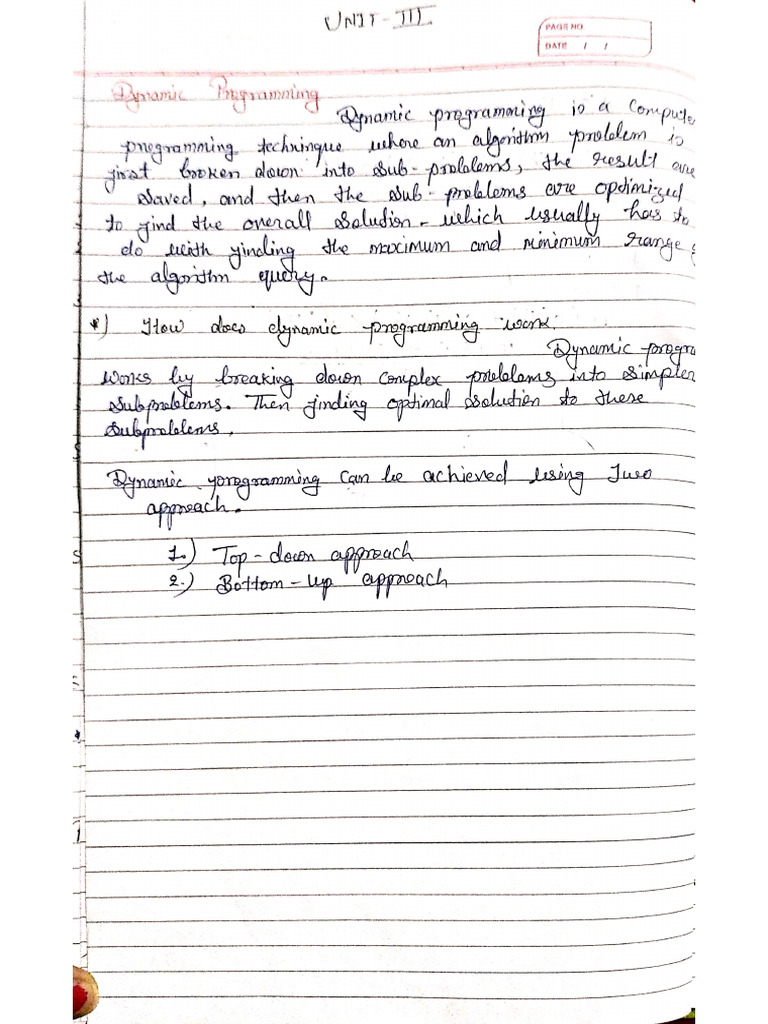 UNIT-III.
PAGE NO.
DATE / /
Dynamic Programming
Dynamic programming is a compute
programming technique where an algorithm problem is
first broken down into sub-problems, the result are
saved, and then the sub-problems are optimized
to find the overall solution - which usually has to
do with finding the maximum and minimum range
the algorithm query.
*) How does dynamic programming work.
Dynamic progra
works by breaking down complex problems into simpler
subproblems. Then finding optimal ssolution to these
subproblems.
Dynamic programming can be achieved using two
approach.
1.) Top-down approach
2.) Bottom-up approach